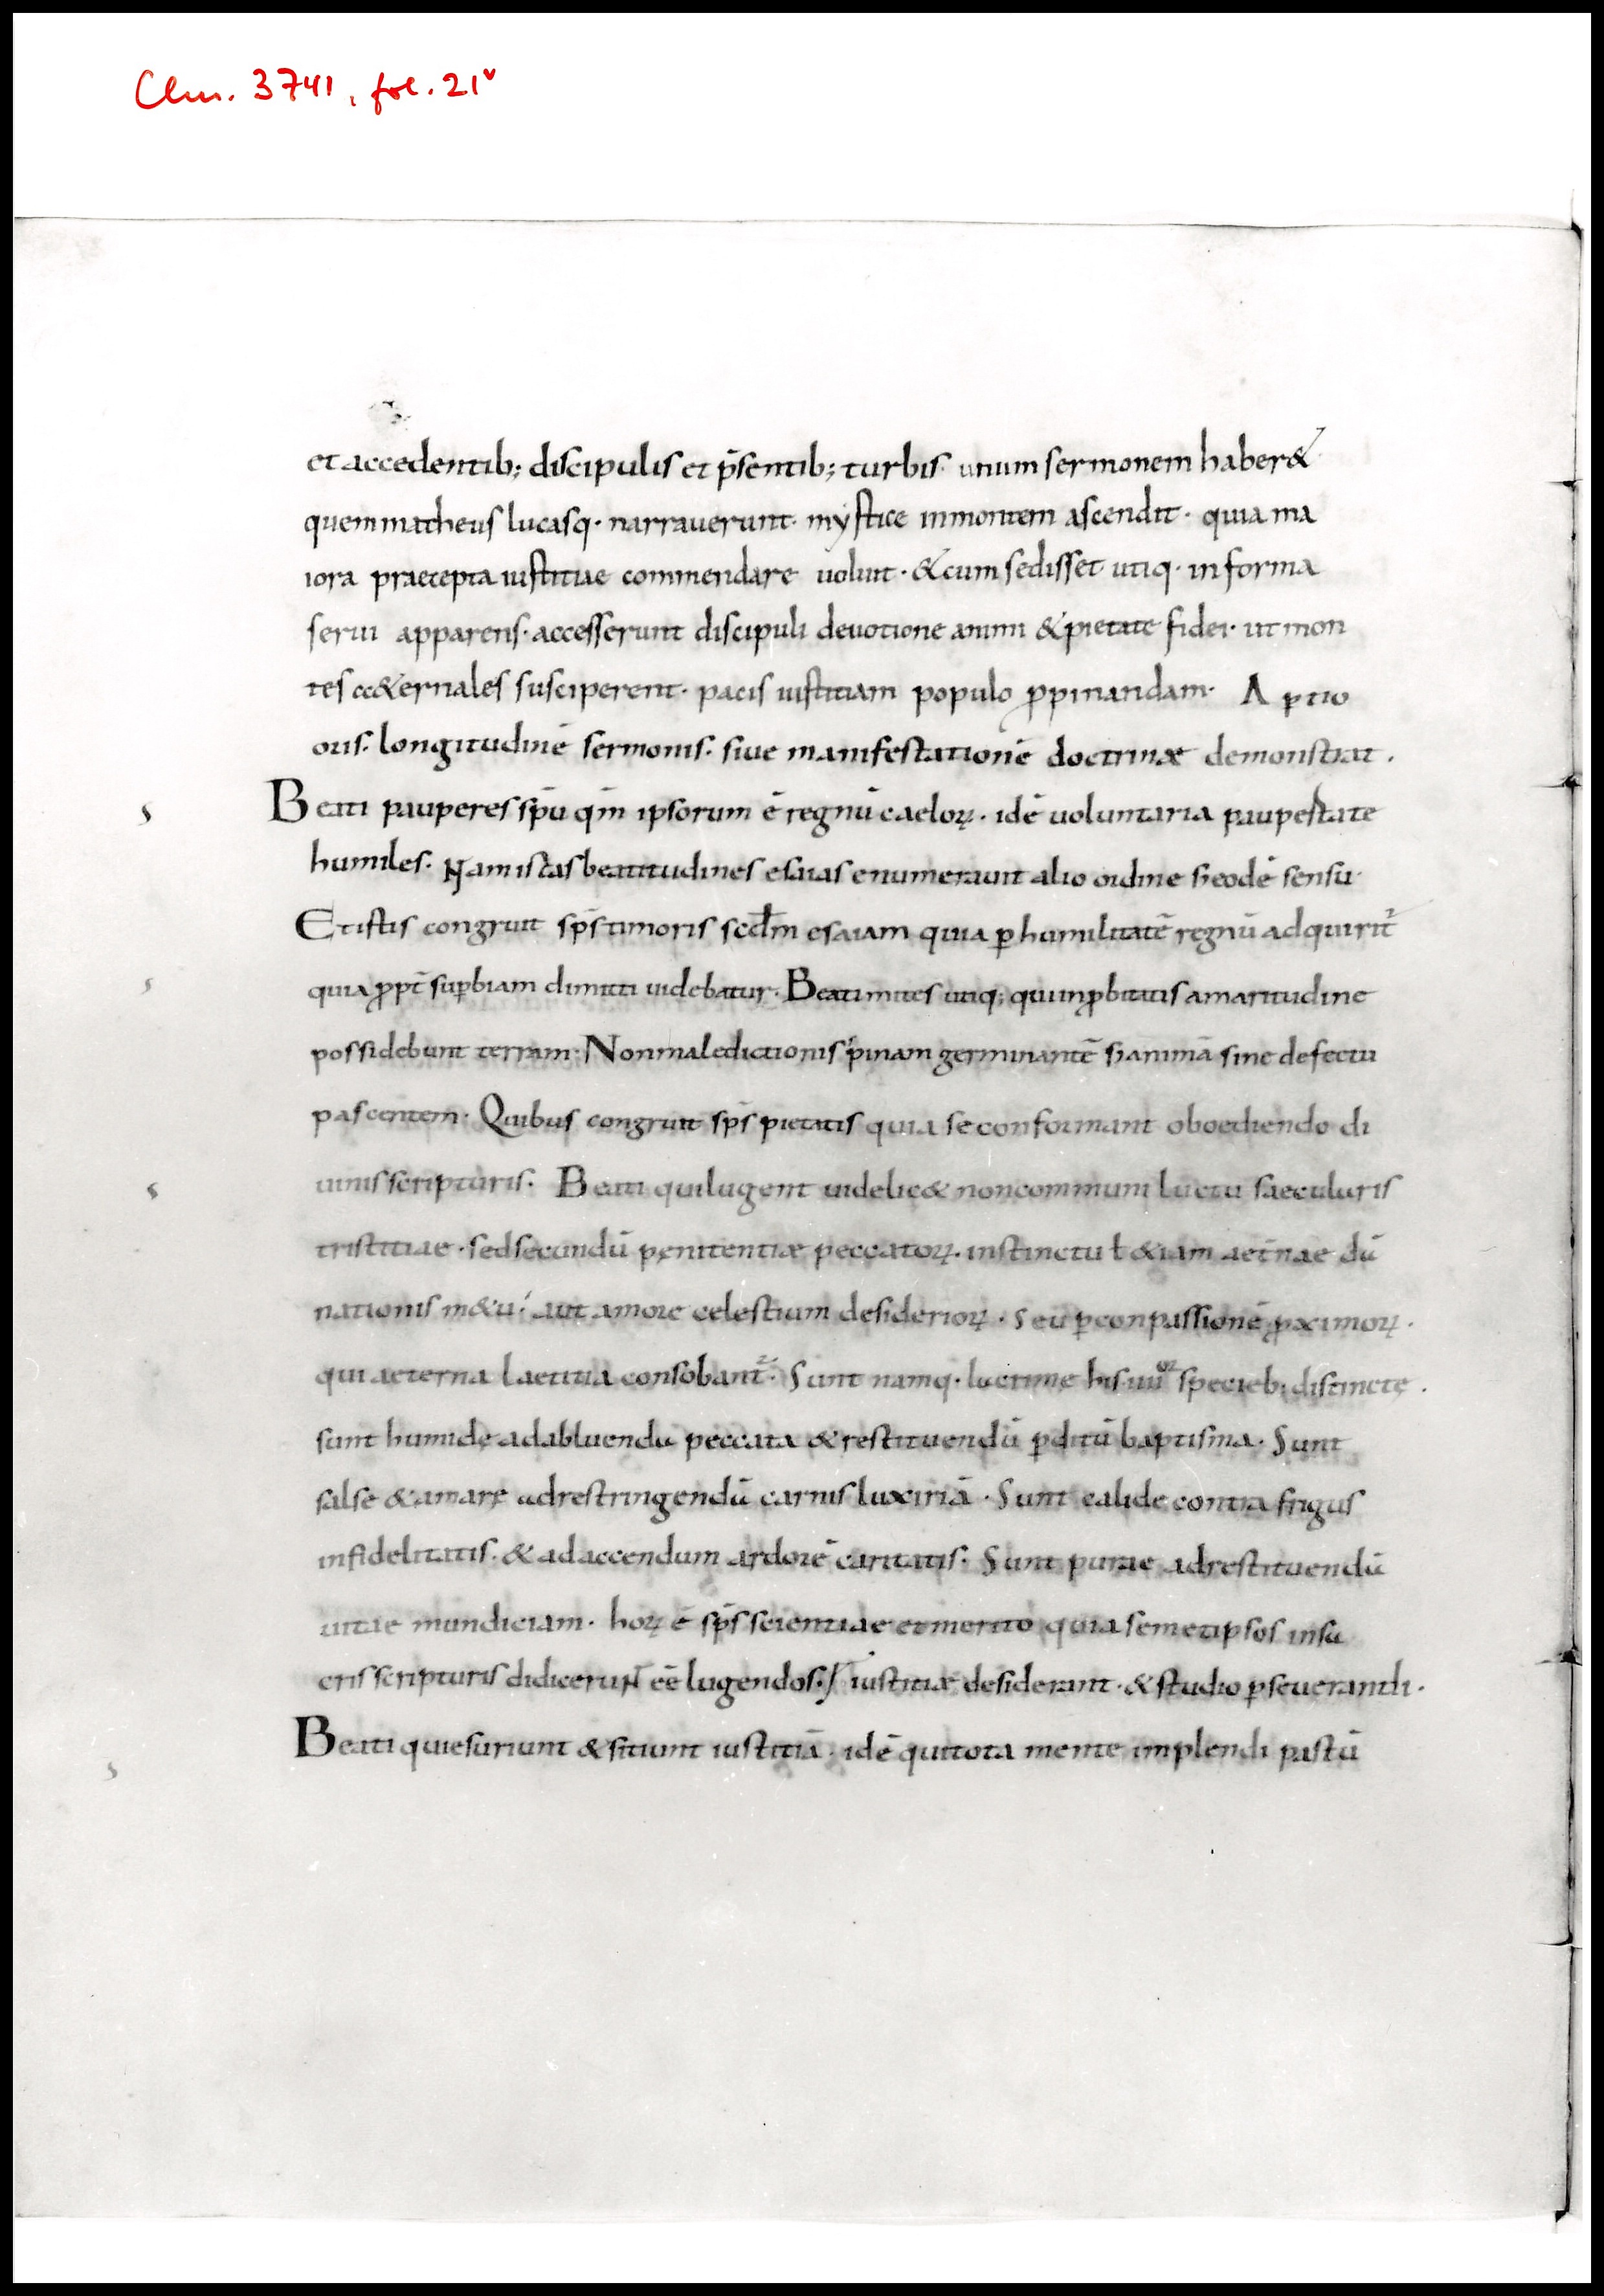 Clm. 3741, fol. 21v
et accedentib; discipulis et p̄sentib; turbis· unum sermonem haber&
quem matheus lucasq· narrauerunt· mystice inmontem ascendit· quia ma
iora praecepta iustitiae commendare uoluit· & cum sedisset utiq· in forma
serui apparens· accesserunt discipuli deuotione animi & pietate fidei· ut mon
tes &ernales susciperent· pacis iustitiam populo ꝓpinandam· Aꝑtio
oris· longitudinē sermonis· siue manifestationē doctrinæ demonstrat·
Beati pauperes sp̄u qm̄ ipsorum ē regnū caeloꝝ· idē uoluntaria pauꝑestate
humiles· Nam istas beatitudines esaias enumerauit alio ordine s; eodē sensu·
Et istis congruit sp̄s timoris scdm̄ esaiam quia ꝑ humilitatē regnū adquirit̄
quia ꝓpt̄ suꝑbiam dimitti uidebatur· Beati mites utiq; qui inꝓbitatis amaritudine
possidebunt terram· Non maledictionis spinam germinantē s; animā sine defectu
pascentem· Quibus congruit sp̄s pietatis quia se conformant oboediendo di
uinis scripturis· Beati qui lugent uidelic& non communi luctu saecularis
tristitiae· sed secundū penitentiæ peccatoꝝ· instinctu ł &iam aet̄nae dā
nationis m&u· aut amore celestium desiderioꝝ· Seu ꝑ conpassionē ꝓximoꝝ·
qui aeterna laetitia consolant̄· Sunt namq· lacrimę his iiiior specieb; distinctę·
sunt humidę ad abluendū peccata & restituendū ꝑditū baptisma· Sunt
salse & amarę ad restringendū carnis luxiriā· Sunt calide contra frigus
infidelitatis· & ad accendum ardorē caritatis· Sunt purae ad restituendū
uitae mundiciam· hoꝝ ē sp̄s scientiae et merito quia semetipsos in sa
cris scripturis didicerunt eē lugendos·/ iustitiæ desiderant· & studio ꝑseuerandi·
Beati qui esuriunt & sitiunt iustitiā· idē qui tota mente implendi pastū